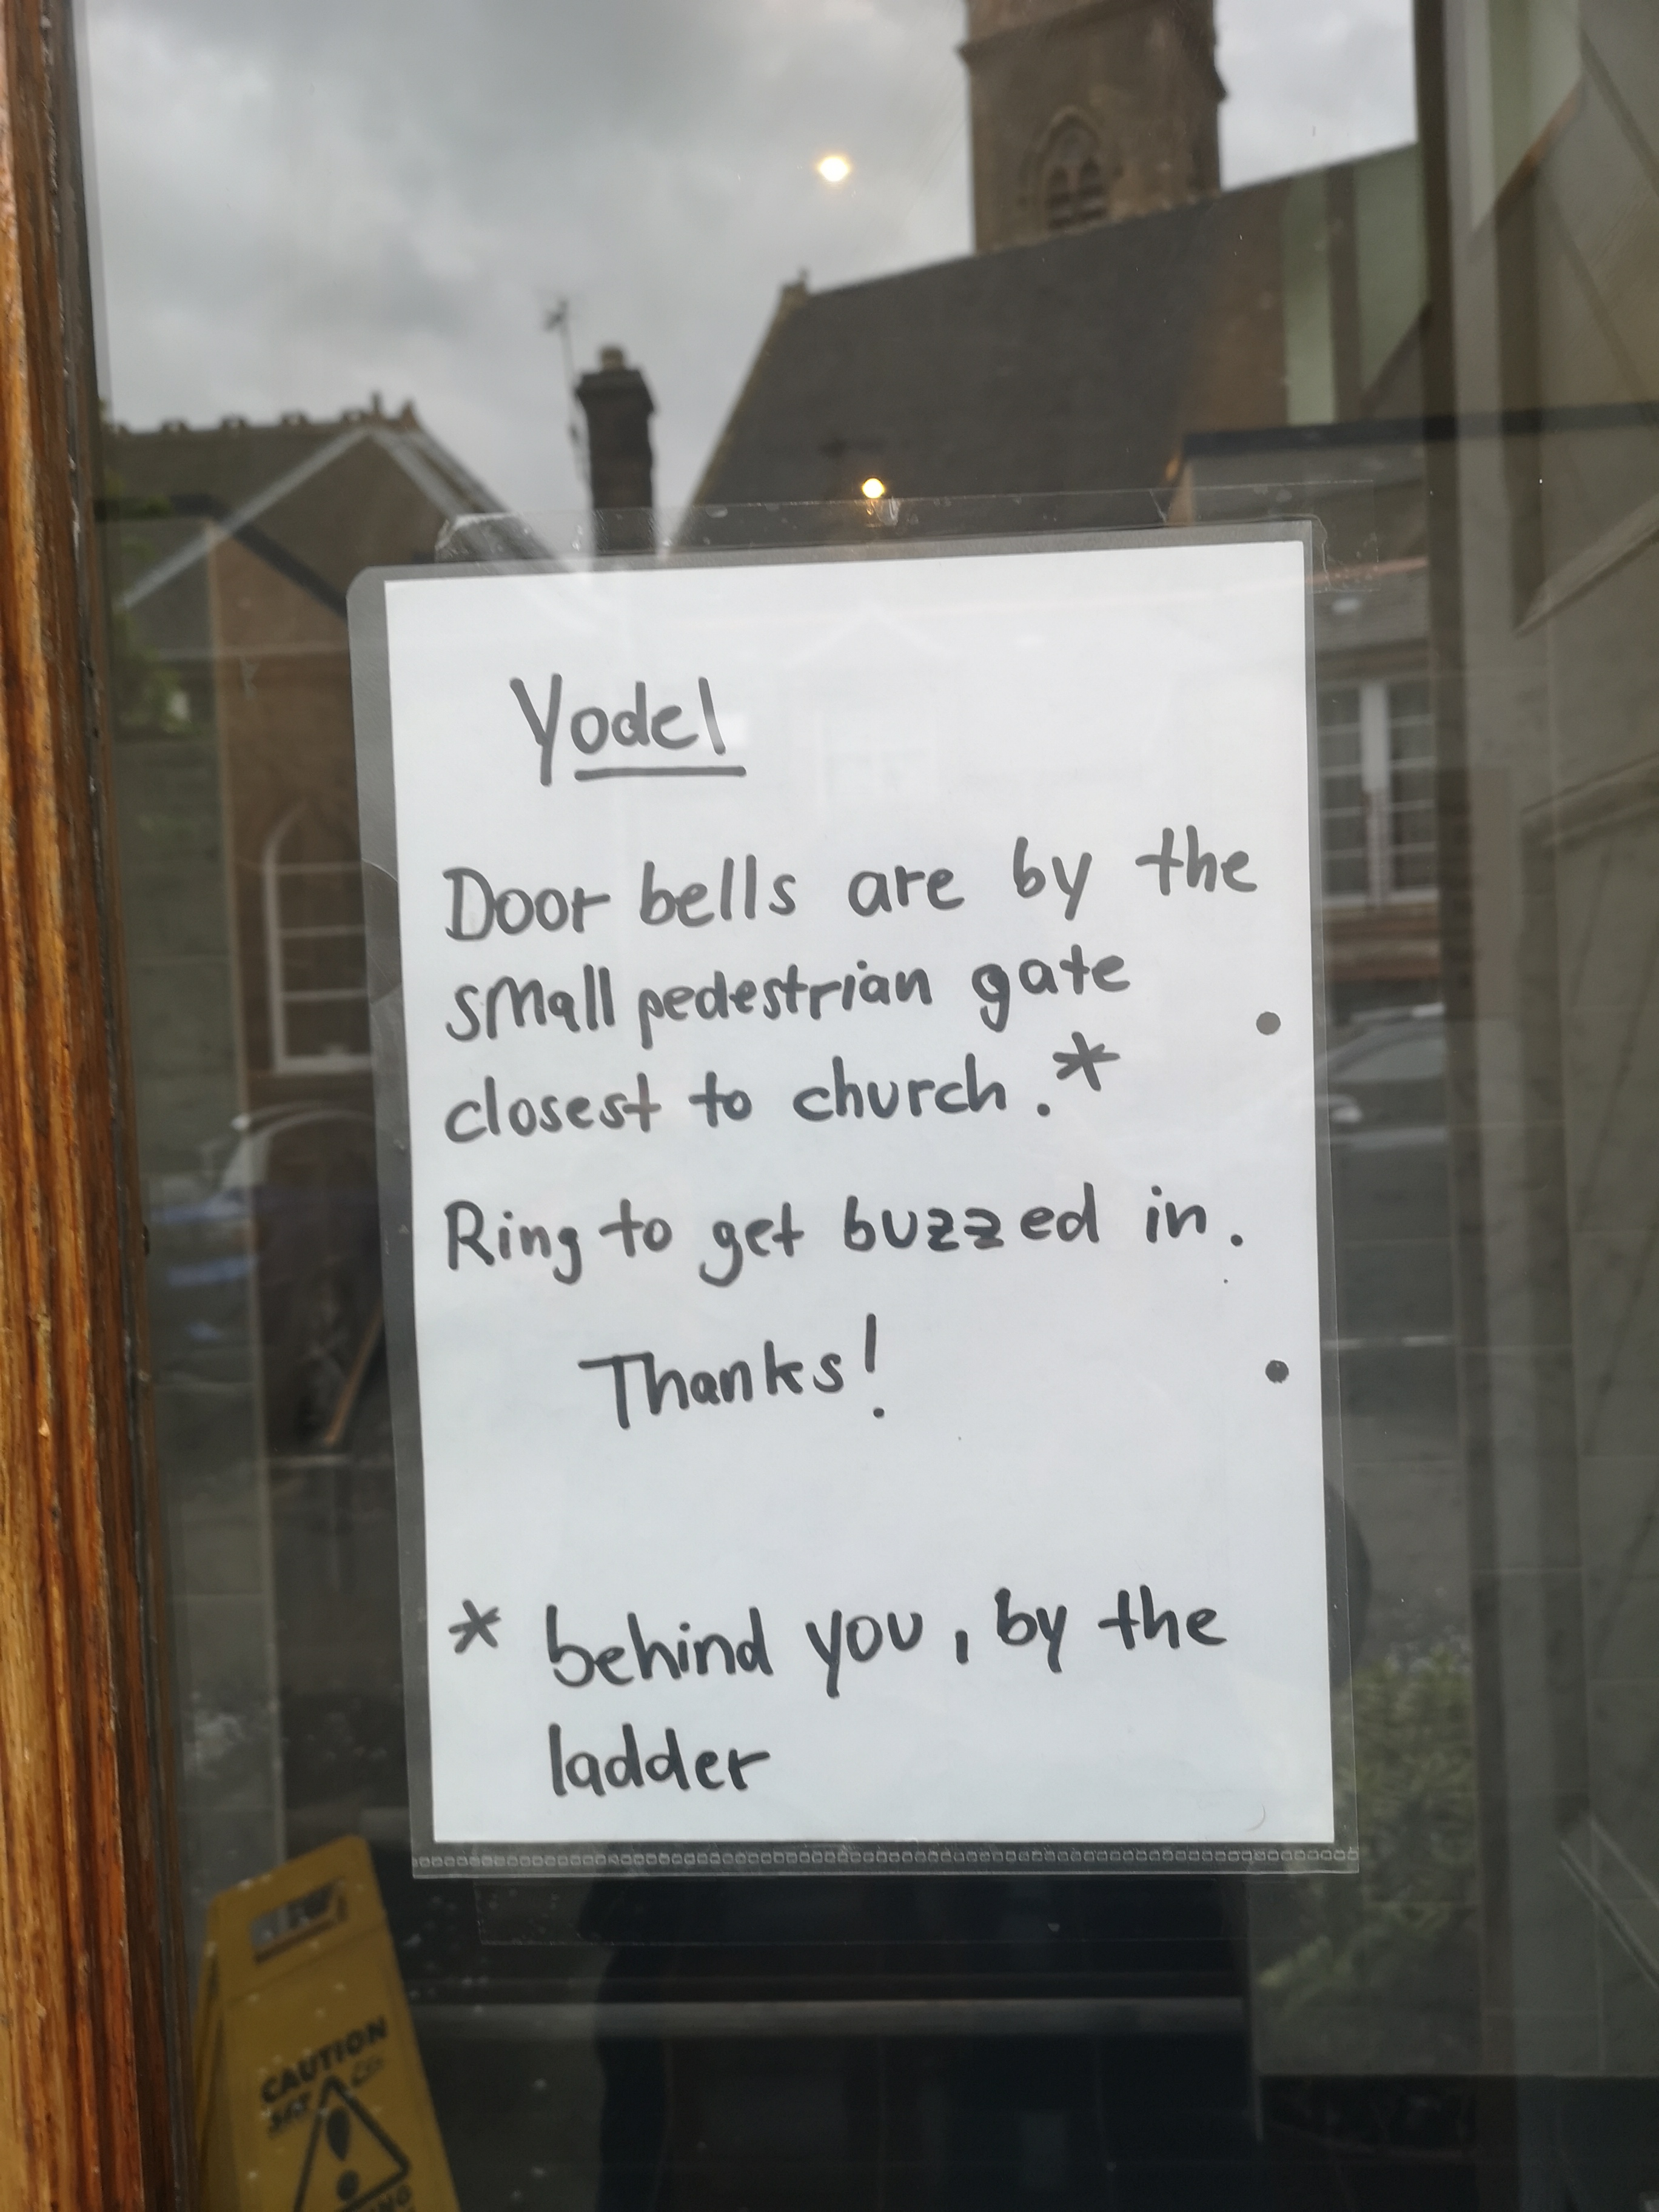 Yodel
Door bells are by the
small pedestrian gate
closest to church.*
Ring to get buzzed in.
Thanks!
* behind you, by the
ladder
CAUTION